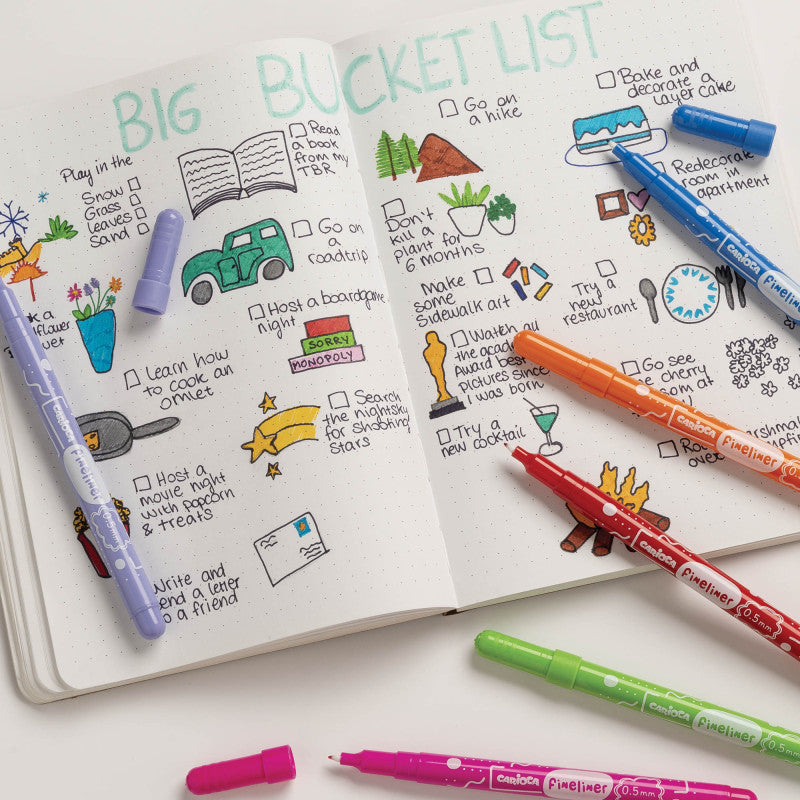 BIG BUCKET LIST
Play in the
Snow
Grass
leaves
Sand
Read
a book
from my
TBR
Go on
a
roadtrip
Host a boardgame
night
SORRY
MONOPOLY
Learn how
to cook an
omlet
Search
the nightsky
for shooting
Stars
Host a
movie night
with popcorn
& treats
Write and
a letter
a friend
Go on
a hike
Bake and
decorate a
layer cake
Don't
kill a
plant for
6 months
Redecorate
room in
apartment
Make
some
Sidewalk art
Try a
new
restaurant
Watch all
the
Award best
pictures since
I was born
Go see
cherry
at
Try a
new cocktail
over
CARIOCA Fineliner 0.5mm
CARIOCA Fineliner
CARIOCA Fineliner
CARIOCA Fineliner 0.5mm
CARIOCA Fineliner 0.5mm
CARIOCA Fineliner 0.5mm